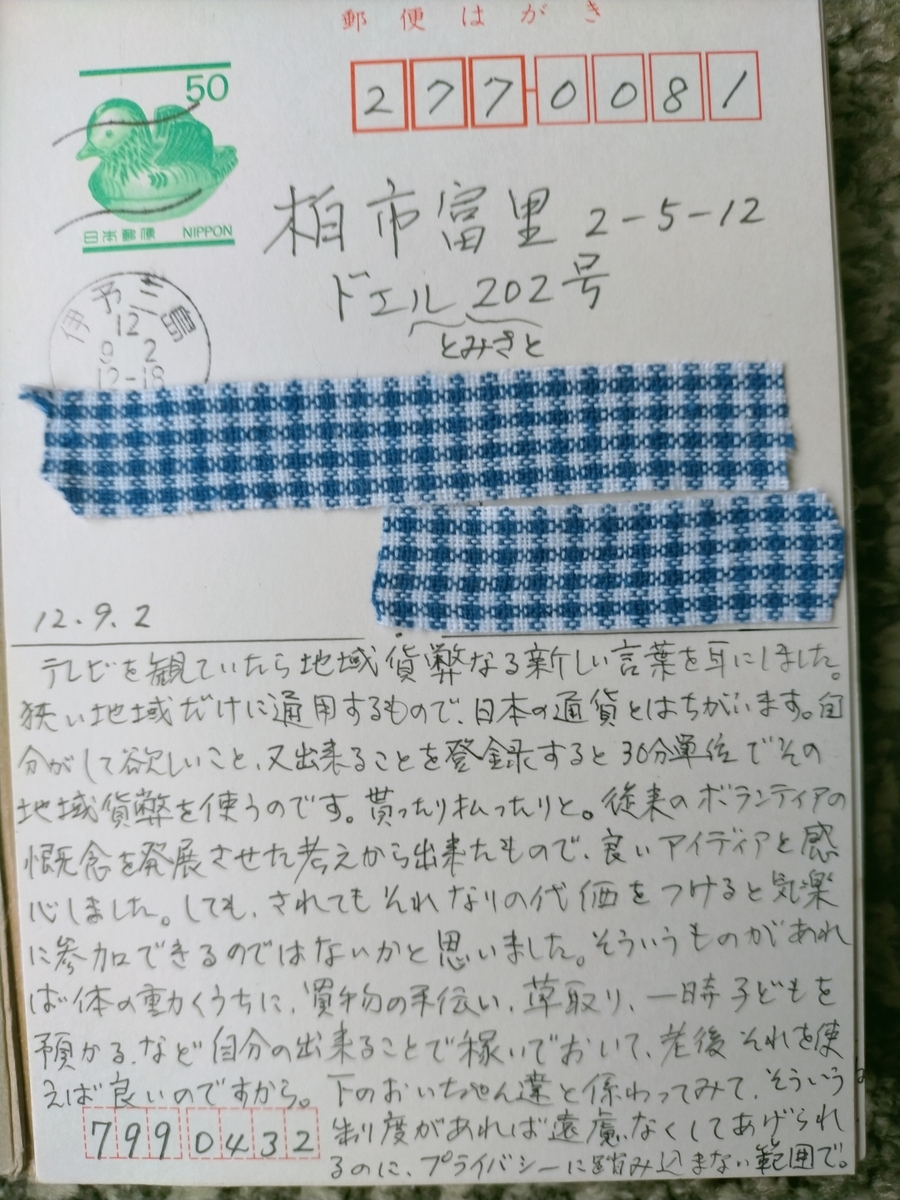 郵便はがき
50
277-0081
日本郵便 NIPPON
柏市富里2-5-12
ドエル202号
とみさと
伊予三島
12
9 2
12-18
12.9.2
テレビを観ていたら地域貨弊なる新しい言葉を耳にしました。
狭い地域だけに通用するもので、日本の通貨とはちがいます。自
分がして欲しいこと、又出来ることを登録すると30分単位でその
地域貨弊を使うのです。貰ったり払ったりと。従来のボランティアの
概念を発展させた考えから出来たもので、良いアイディアと感
心しました。しても、されてもそれなりの代価をつけると気楽
に参加できるのではないかと思いました。そういうものがあれ
ば体の動くうちに、買物の手伝い、草取り、一時子どもを
預かる、など自分の出来ることで稼いでおいて、老後それを使
えば良いのですから。下のおいちゃん達と係わってみて、そういう
制度があれば遠慮なくしてあげられ
るのに、プライバシーに踏み込まない範囲で。
7990432